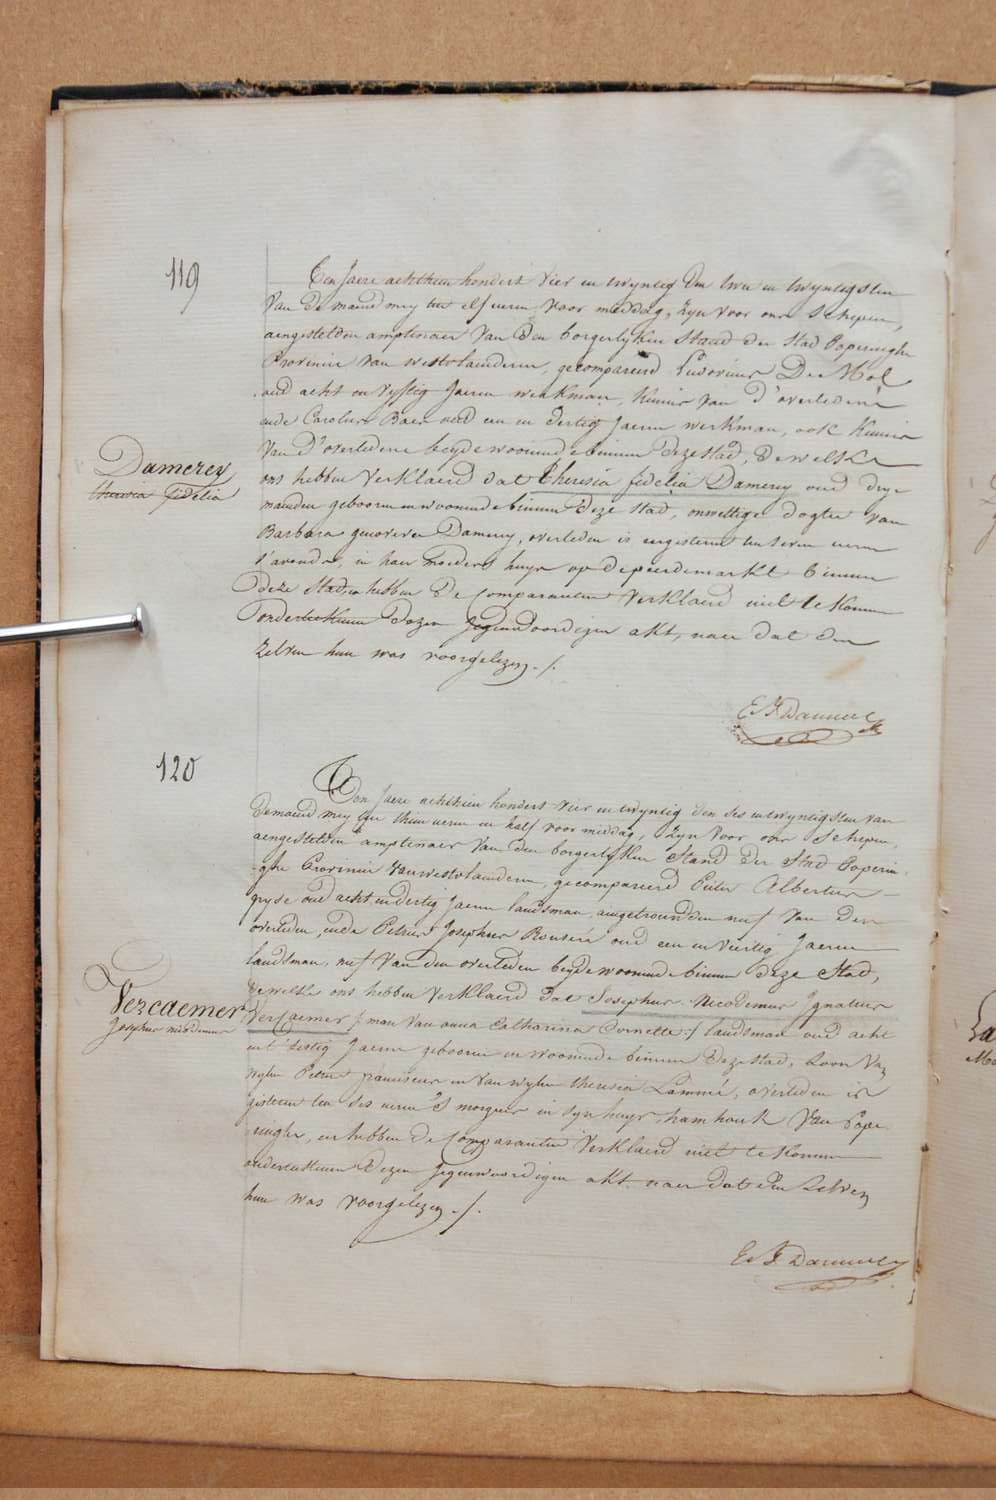 119
Ten Jaere achthien hondert vier en twyntig den twee en twyntigsten
van de maend mey ten elf uren voor middag, zyn voor ons schepen,
aengestelden amptenaer van den borgerlyken stand der stad Poperinghe
Provincie van westvlaenderen, gecompareerd Ludovicus De Mol
oud acht en vyftig Jaeren werkman, kennis van d'overledene
ende Carolus Baes oud een en dertig Jaeren werkman, ook kennis
van d'overledene beyde woonende binnen deze stad, dewelke
Damerey
theresia fidelia
ons hebben verklaerd dat theresia fidelia Damerey oud drye
maenden geboren en woonende binnen deze stad, onwettige dogter van
Barbara genoveva Damerey, overleden is eergisteren ten seven uren
s'avonds, in haer moeders huys op de peerdemarkt binnen
deze stad, en hebben de comparanten verklaerd niet te konnen
onderteekenen dezen Jegenwoordigen akt, naer dat den
zelven hun was voorgelezen ./.
120
Ten Jaere achthien hondert vier en twyntig den ses en twyntigsten van
de maend mey ten thien uren en half voor middag, zyn voor ons schepen,
aengestelden amptenaer van den borgerlyken stand der stad Poperin-
-ghe Provincie van westvlaenderen, gecompareerd Pieter Albertus
gryse oud acht en dertig Jaeren landsman, aengetrouwden neef van den
overleden, ende Petrus Josephus Rouseré oud een en viertig Jaeren
landsman, neef van den overleden beyde woonende binnen deze stad,
Vercaemer
Josephus nicodemus
dewelke ons hebben verklaerd dat Josephus Nicodemus Ignatius
Vercaemer /: man van anna Catharina Dornette :/ landsman oud acht
en t'sestig Jaeren geboren en woonende binnen deze stad, zoon van
wylen Petrus franciscus en van wylen theresia Lammé, overleden is
gisteren ten ses uren 's morgens in syn huys hamhouk van Pope-
-ringhe, en hebben de comparanten verklaerd niet te konnen
onderteekenen dezen Jegenwoordigen akt naer dat den zelven
hun was voorgelezen ./.